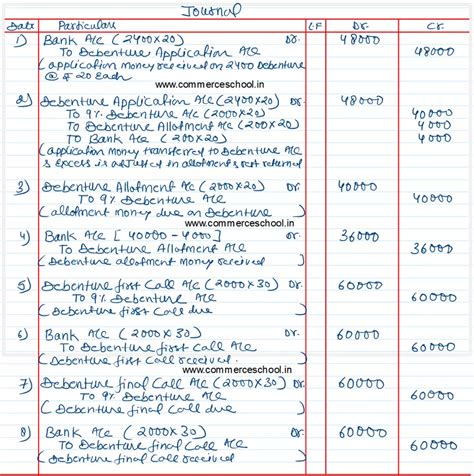 Journal
Date Particulars L.F Dr. Cr.
1) Bank A/c (2400×20) Dr. 48000
To Debenture Application A/c 48000
(application money received on 2400 Debenture
@ ₹ 20 Each
www.commerceschool.in
2) Debenture Application A/c (2400×20) Dr. 48000
To 9% Debenture A/c (2000×20) 40000
To Debenture Allotment A/c (200×20) 4000
To Bank A/c (200×20) 4000
(application money transferred to Debenture A/c
& Excess is adjusted in allotment & rest returned
3) Debenture Allotment A/c (2000×20) Dr. 40000
To 9% Debenture A/c 40000
(allotment money due on Debenture
www.commerceschool.in
4) Bank A/c [40000 - 4000] Dr. 36000
To Debenture Allotment A/c 36000
(Debenture allotment money received)
5) Debenture first Call A/c (2000×30) Dr. 60000
To 9% Debenture A/c 60000
(Debenture first Call due
6) Bank A/c (2000×30) Dr. 60000
To Debenture first Call A/c 60000
(Debenture first Call received
www.commerceschool.in
7) Debenture final Call A/c (2000×30) Dr. 60000
To 9% Debenture A/c 60000
(Debenture final Call due
8) Bank A/c (2000×30) Dr. 60000
To Debenture final Call A/c 60000
(Debenture final Call received